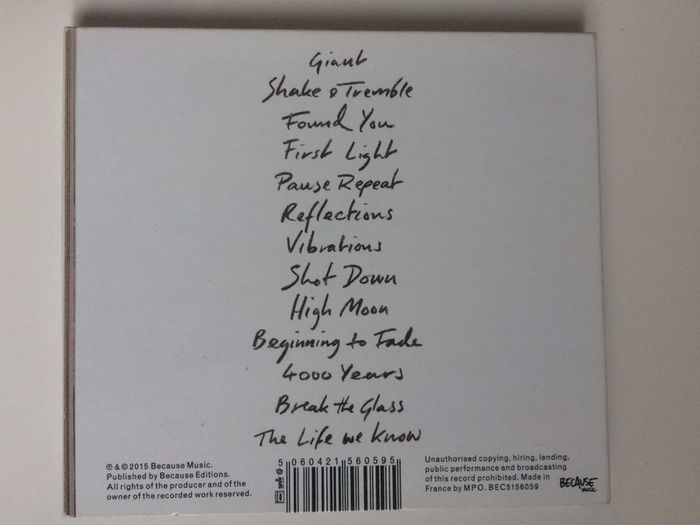 Giant
Shake & Tremble
Found You
First Light
Pause Repeat
Reflections
Vibrations
Shot Down
High Moon
Beginning to Fade
4000 Years
Break the Glass
The Life we know
℗ & © 2015 Because Music.
Published by Because Editions.
All rights of the producer and of the
owner of the recorded work reserved.
5 060421 560595
Unauthorised copying, hiring, lending,
public performance and broadcasting
of this record prohibited. Made in
France by MPO. BEC5156059
BECAUSE
MUSIC